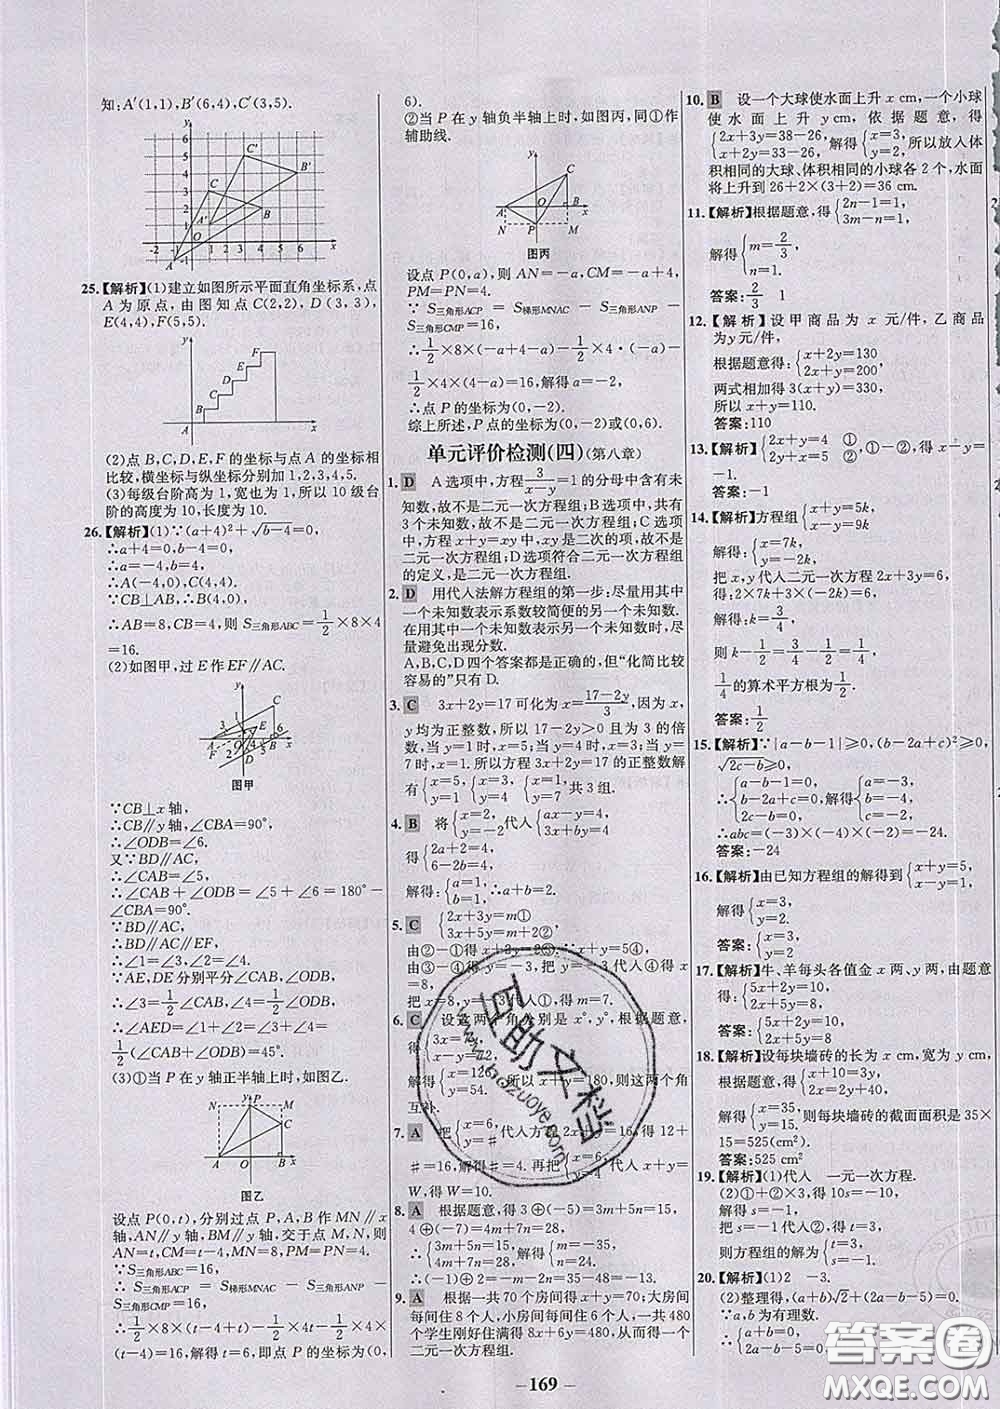 知:A′(1,1),B′(6,4),C′(3,5).
25.【解析】(1)建立如图所示平面直角坐标系,点
A为原点,由图知点C(2,2),D(3,3),
E(4,4),F(5,5).
(2)点B,C,D,E,F的坐标与点A的坐标
相比较,横坐标与纵坐标分别加1,2,3,4,5.
(3)每级台阶高为1,宽也为1,所以10级台
阶的高度为10,长度为10.
26.【解析】(1)∵(a+4)²+√(b-4)=0,
∴a+4=0,b-4=0,
∴A(-4,0),C(4,4).
∵CB⊥AB,∴B(4,0),
∴AB=8,CB=4,则S三角形ABC=1/2×8×4
=16.
(2)如图甲,过E作EF∥AC.
图甲
∵CB⊥x轴,
∴CB∥y轴,∠CBA=90°,
∴∠ODB=∠6.
又∵BD∥AC,
∴∠CAB=∠5,
∴∠CAB+∠ODB=∠5+∠6=180°-
∠CBA=90°.
∵BD∥AC,
∴BD∥AC∥EF,
∴∠1=∠3,∠2=∠4.
∵AE,DE分别平分∠CAB,∠ODB,
∴∠3=1/2∠CAB,∠4=1/2∠ODB,
∴∠AED=∠1+∠2=∠3+∠4=
1/2(∠CAB+∠ODB)=45°.
(3)①当P在y轴正半轴上时,如图乙.
图乙
设点P(0,t),分别过点P,A,B作MN∥x
轴,AN∥y轴,BM∥y轴,交于点M,N,则
AN=t,CM=t-4,MN=8,PM=PN=4.
∵S三角形ABC=16,
∴S三角形ACP=S梯形MNAC-S三角形ANP-
S三角形CMP=16,
∴1/2×8×(t-4+t)-1/2×4t-1/2×4×
(t-4)=16,解得t=6,即点P的坐标为(0,
6).
②当P在y轴负半轴上时,如图丙,同①作
辅助线.
图丙
设点P(0,a),则AN=-a,CM=-a+4,
PM=PN=4.
∵S三角形ACP=S梯形MNAC-S三角形ANP-
S三角形CMP=16,
∴1/2×8×(-a+4-a)-1/2×4·(-a)-
1/2×4×(4-a)=16,解得a=-2,
∴点P的坐标为(0,-2).
综上所述,P点的坐标为(0,-2)或(0,6).
单元评价检测(四)(第八章)
1. D A选项中,方程3/(x-y)=1的分母中含有未
知数,故不是二元一次方程组;B选项中共
有3个未知数,故不是二元一次方程组;C选
项中,方程x+y=xy中,xy是二次的项,故不是
二元一次方程组;D选项符合二元一次方程组
的定义,是二元一次方程组.
2. D 用代入法解方程组的第一步:尽量用其中
一个未知数表示系数较简便的另一个未知数.
在用其中一个未知数表示另一个未知数时,尽
量避免出现分数.
A,B,C,D四个答案都是正确的,但“化简比较
容易的”只有D.
3. C 3x+2y=17可化为x=(17-2y)/3,因为x,
y均为正整数,所以17-2y>0且为3的倍
数,当y=1时,x=5;当y=4时,x=3;当y=
7时,x=1.所以方程3x+2y=17的正整数解
有{x=5, y=1 {x=3, y=4 {x=1, y=7 共3组.
4. B 将{x=2, y=-2代入{ax-y=4, 3x+by=4
得{2a+2=4, 6-2b=4,
解得:{a=1, b=1,∴a+b=2.
5. C {2x+3y=m① 3x+5y=m+2②,
由②-①得x+2y=2③,∵x+y=5④,
由③-④得y=-3,把y=-3代入④得x
=8,
把x=8,y=-3代入①,得m=7.
6. C 设这两个角分别是x°,y°,根据题意,得
解得,所以x+y=180,则这两个角
互补.
7. A 把{x=6, y=#代入方程2x+y=16,得12+
#=16,解得#=4.再把{x=6, y=4代入x+y=
★得,★=10.
8. A 根据题意,得3⊕(-5)=3m+5n=15,
4⊕(-7)=4m+7n=28
∴{3m+5n=15, 4m+7n=28,解得{m=-35, n=24
∴(-1)⊕2=-m-2n=35-48=-13.
9. A 根据一共70个房间得x+y=70;大房间
每间住8个人,小房间每间住6个人,一共480
个学生刚好住满得8x+6y=480,从而得出
二元一次方程组.
10. B 设一个大球使水面上升x cm,一个小球
使水面上升y cm,依据题意,得
{2x+3y=38-26, x+2y=33-26,解得{x=3, y=2,所以放入体
积相同的大球、体积相同的小球各2个,水面
将上升到26+2×(3+2)=36 cm.
11.【解析】根据题意,得{2n-1=1, 3m-n=1,
解得{m=2/3, n=1.
答案:2/3 1
12.【解析】设甲商品为x元/件,乙商品
为y元/件,
根据题意得:{x+2y=130 2x+y=200,
两式相加得3(x+y)=330,
所以x+y=110.
答案:110
13.【解析】{2x+y=4 ① 2y+x=5 ②,①-②,得x-y=
-1.
答案:-1
14.【解析】方程组{x+y=5k, x-y=9k
解得:{x=7k, y=-2k,
把x,y代入二元一次方程2x+3y=6,
得:2×7k+3×(-2k)=6,
解得:k=3/4
则k-1/2=3/4-1/2=1/4,
1/4的算术平方根为1/2.
答案:1/2
15.【解析】∵|a-b-1|≥0,(b-2a+c)²≥0,
√(2c-b)≥0,
∴{a-b-1=0, b-2a+c=0, 2c-b=0,解得{a=-3, b=-4, c=-2,
∴abc=(-3)×(-4)×(-2)=-24.
答案:-24
16.【解析】由已知方程组的解得到{x+y=5, x-y=1,
解得{x=3, y=2.
答案:{x=3, y=2
17.【解析】牛、羊每头各值金x两、y两,由题意
得:{5x+2y=10, 2x+5y=8.
答案:{5x+2y=10, 2x+5y=8
18.【解析】设每块墙砖的长为x cm,宽为y cm,
根据题意,得{x+10=3y, 2x=2y+40,
解得{x=35, y=15.则每块墙砖的截面面积是35×
15=525(cm²).
答案:525 cm²
19.【解析】(1)代入 一元一次方程.
(2)①+②×3,得10s=-10,
解得:s=-1,
把s=-1代入②,得t=3,
则方程组的解为{s=-1, t=3.
20.【解析】(1)2 -3.
(2)整理得,(a+b)√2+(2a-b-5)=0.
∵a,b为有理数,
— 169 —
互助文档
答案圈
MXQE.COM